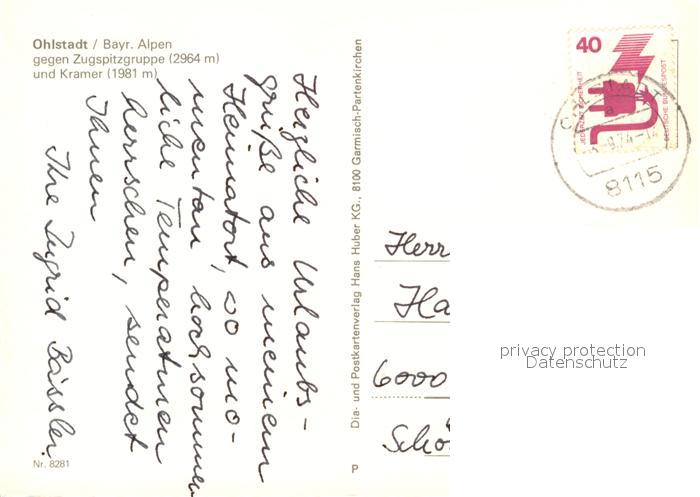 Ohlstadt / Bayr. Alpen
gegen Zugspitzgruppe (2964 m)
und Kramer (1981 m)
Herzliche Urlaubs-
grüße aus meinem
Heimatort, wo mo-
mentan hochsommer
liche Temperaturen
herrschen, sendet
Ihnen
Ihre Ingrid Bässler.
Nr. 8281
Dia- und Postkartenverlag Hans Huber KG., 8100 Garmisch-Partenkirchen
P
40
JEDERZEIT SICHERHEIT
DEUTSCHE BUNDESPOST
8115
Herr
Ha
6000
Schö
privacy protection
Datenschutz